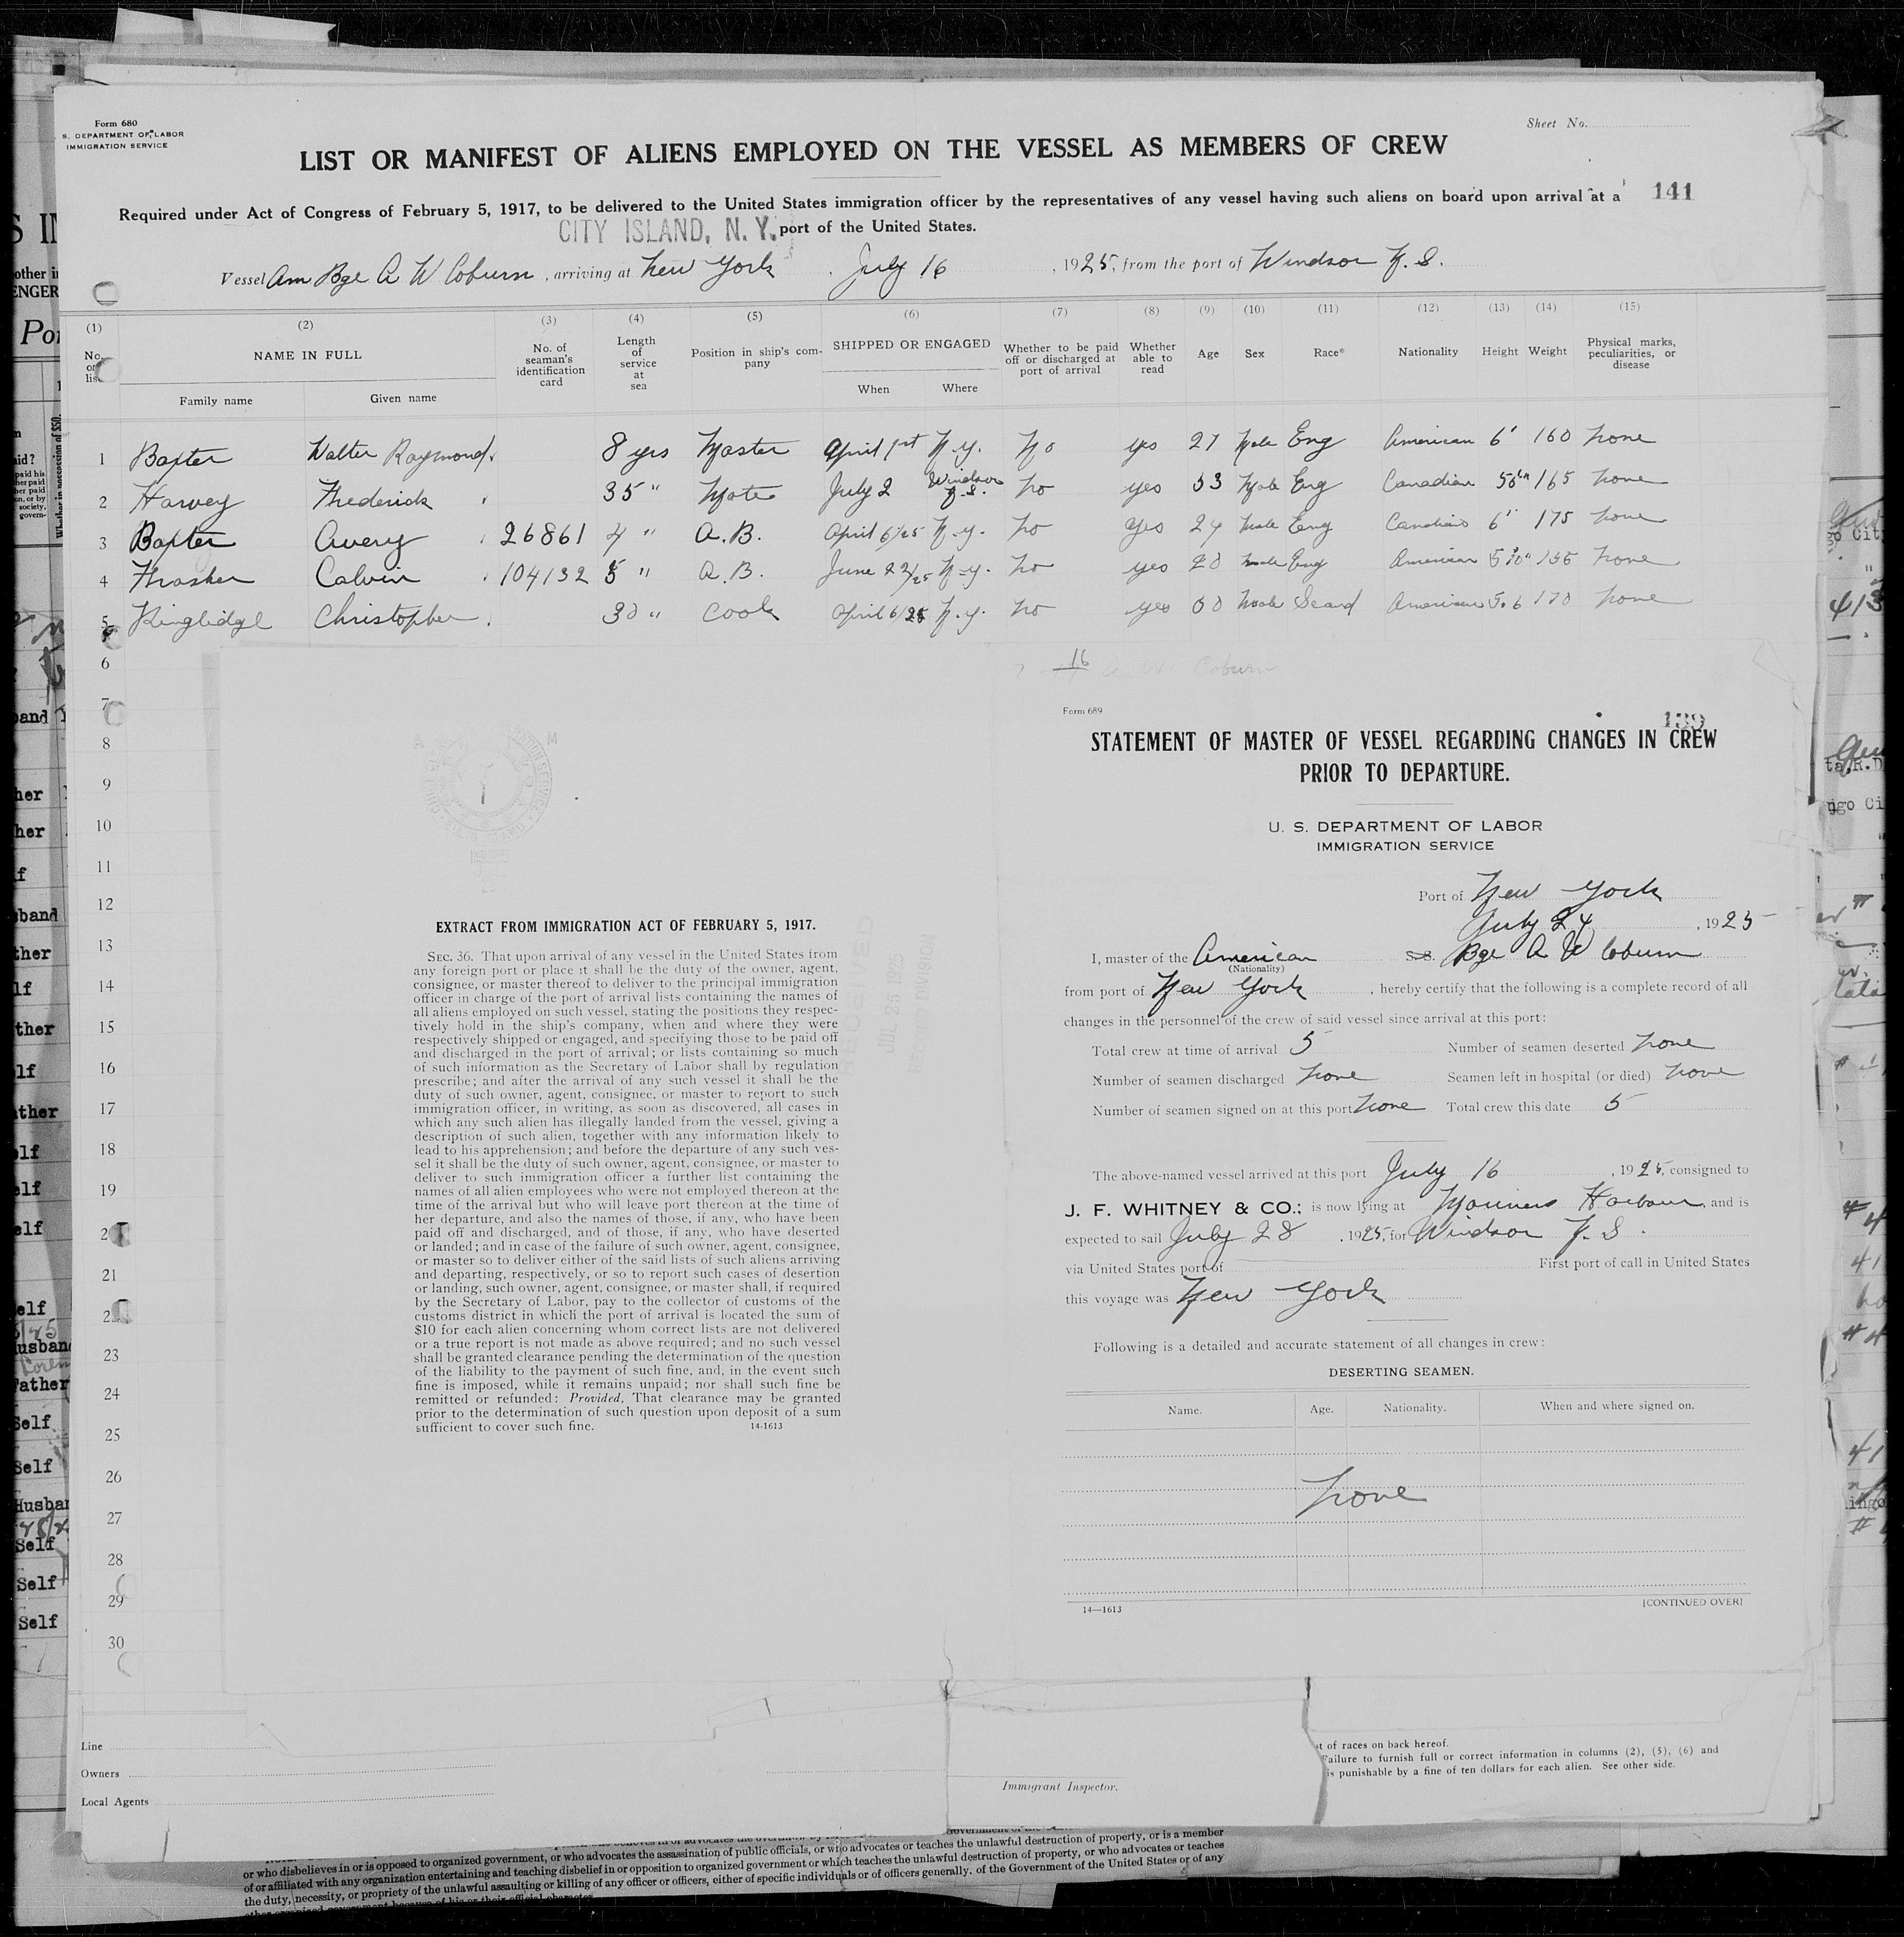 Form 680
S. DEPARTMENT OF LABOR
IMMIGRATION SERVICE
Sheet No.
LIST OR MANIFEST OF ALIENS EMPLOYED ON THE VESSEL AS MEMBERS OF CREW
141
Required under Act of Congress of February 5, 1917, to be delivered to the United States immigration officer by the representatives of any vessel having such aliens on board upon arrival at a
CITY ISLAND, N. Y. port of the United States.
Vessel Am Bge A W Coburn, arriving at New York, July 16, 1925, from the port of Windsor N.S.
(1) (2) (3) (4) (5) (6) (7) (8) (9) (10) (11) (12) (13) (14) (15)
No. on list NAME IN FULL No. of seaman's identification card Length of service at sea Position in ship's company SHIPPED OR ENGAGED Whether to be paid off or discharged at port of arrival Whether able to read Age Sex Race* Nationality Height Weight Physical marks, peculiarities, or disease
Family name Given name When Where
1 Baxter Walter Raymond 8 yrs Master April 1st N.Y. No yes 27 Male Eng American 6' 160 None
2 Harvey Frederick 35 " Mate July 2 Windsor N.S. No yes 53 Male Eng Canadian 165 None
3 Baxter Avery 26861 4 " A.B. April 6/25 N.Y. No yes 24 Male Eng 6' 175 None
4 Thrasher Calvin 104132 5 " A.B. June 22/25 N.Y. No yes 20 Male Eng American 5'10" None
5 Christopher 30 " Cook April 6/25 N.Y. No yes Male Scand American 5.6 170 None
6
7
8
9
10
11
12
13
14
15
16
17
18
19
21
23
24
25
26
27
28
29
30
16
A. W. Coburn
EXTRACT FROM IMMIGRATION ACT OF FEBRUARY 5, 1917.
SEC. 36. That upon arrival of any vessel in the United States from
any foreign port or place it shall be the duty of the owner, agent,
consignee, or master thereof to deliver to the principal immigration
officer in charge of the port of arrival lists containing the names of
all aliens employed on such vessel, stating the positions they respec-
tively hold in the ship's company, when and where they were
respectively shipped or engaged, and specifying those to be paid off
and discharged in the port of arrival; or lists containing so much
of such information as the Secretary of Labor shall by regulation
prescribe; and after the arrival of any such vessel it shall be the
duty of such owner, agent, consignee, or master to report to such
immigration officer, in writing, as soon as discovered, all cases in
which any such alien has illegally landed from the vessel, giving a
description of such alien, together with any information likely to
lead to his apprehension; and before the departure of any such ves-
sel it shall be the duty of such owner, agent, consignee, or master to
deliver to such immigration officer a further list containing the
names of all alien employees who were not employed thereon at the
time of the arrival but who will leave port thereon at the time of
her departure, and also the names of those, if any, who have been
paid off and discharged, and of those, if any, who have deserted
or landed; and in case of the failure of such owner, agent, consignee,
or master so to deliver either of the said lists of such aliens arriving
and departing, respectively, or so to report such cases of desertion
or landing, such owner, agent, consignee, or master shall, if required
by the Secretary of Labor, pay to the collector of customs of the
customs district in which the port of arrival is located the sum of
$10 for each alien concerning whom correct lists are not delivered
or a true report is not made as above required; and no such vessel
shall be granted clearance pending the determination of the question
of the liability to the payment of such fine, and, in the event such
fine is imposed, while it remains unpaid; nor shall such fine be
remitted or refunded: Provided, That clearance may be granted
prior to the determination of such question upon deposit of a sum
sufficient to cover such fine. 14-1613
RECEIVED
JUL 25 1925
RECORD DIVISION
Form 689
139
STATEMENT OF MASTER OF VESSEL REGARDING CHANGES IN CREW
PRIOR TO DEPARTURE.
U. S. DEPARTMENT OF LABOR
IMMIGRATION SERVICE
Port of New York
July 24, 1925
I, master of the American S.S. Bge A W Coburn
(Nationality)
from port of New York, hereby certify that the following is a complete record of all
changes in the personnel of the crew of said vessel since arrival at this port:
Total crew at time of arrival 5 Number of seamen deserted None
Number of seamen discharged None Seamen left in hospital (or died) None
Number of seamen signed on at this port None Total crew this date 5
The above-named vessel arrived at this port July 16, 1925, consigned to
J. F. WHITNEY & CO.; is now lying at Mariners Harbour, and is
expected to sail July 28, 1925, for Windsor N.S.
via United States port of First port of call in United States
this voyage was New York
Following is a detailed and accurate statement of all changes in crew:
DESERTING SEAMEN.
Name. Age. Nationality. When and where signed on.
None
14—1613 [CONTINUED OVER]
Line
Owners
Local Agents
Immigrant Inspector.
st of races on back hereof.
Failure to furnish full or correct information in columns (2), (5), (6) and
is punishable by a fine of ten dollars for each alien. See other side.
or who disbelieves in or is opposed to organized government, or who advocates the assassination of public officials, or who advocates or teaches the unlawful destruction of property, or is a member
of or affiliated with any organization entertaining and teaching disbelief in or opposition to organized government or which teaches the unlawful destruction of property, or who advocates or teaches
the duty, necessity, or propriety of the unlawful assaulting or killing of any officer or officers, either of specific individuals or of officers generally, of the Government of the United States or of any